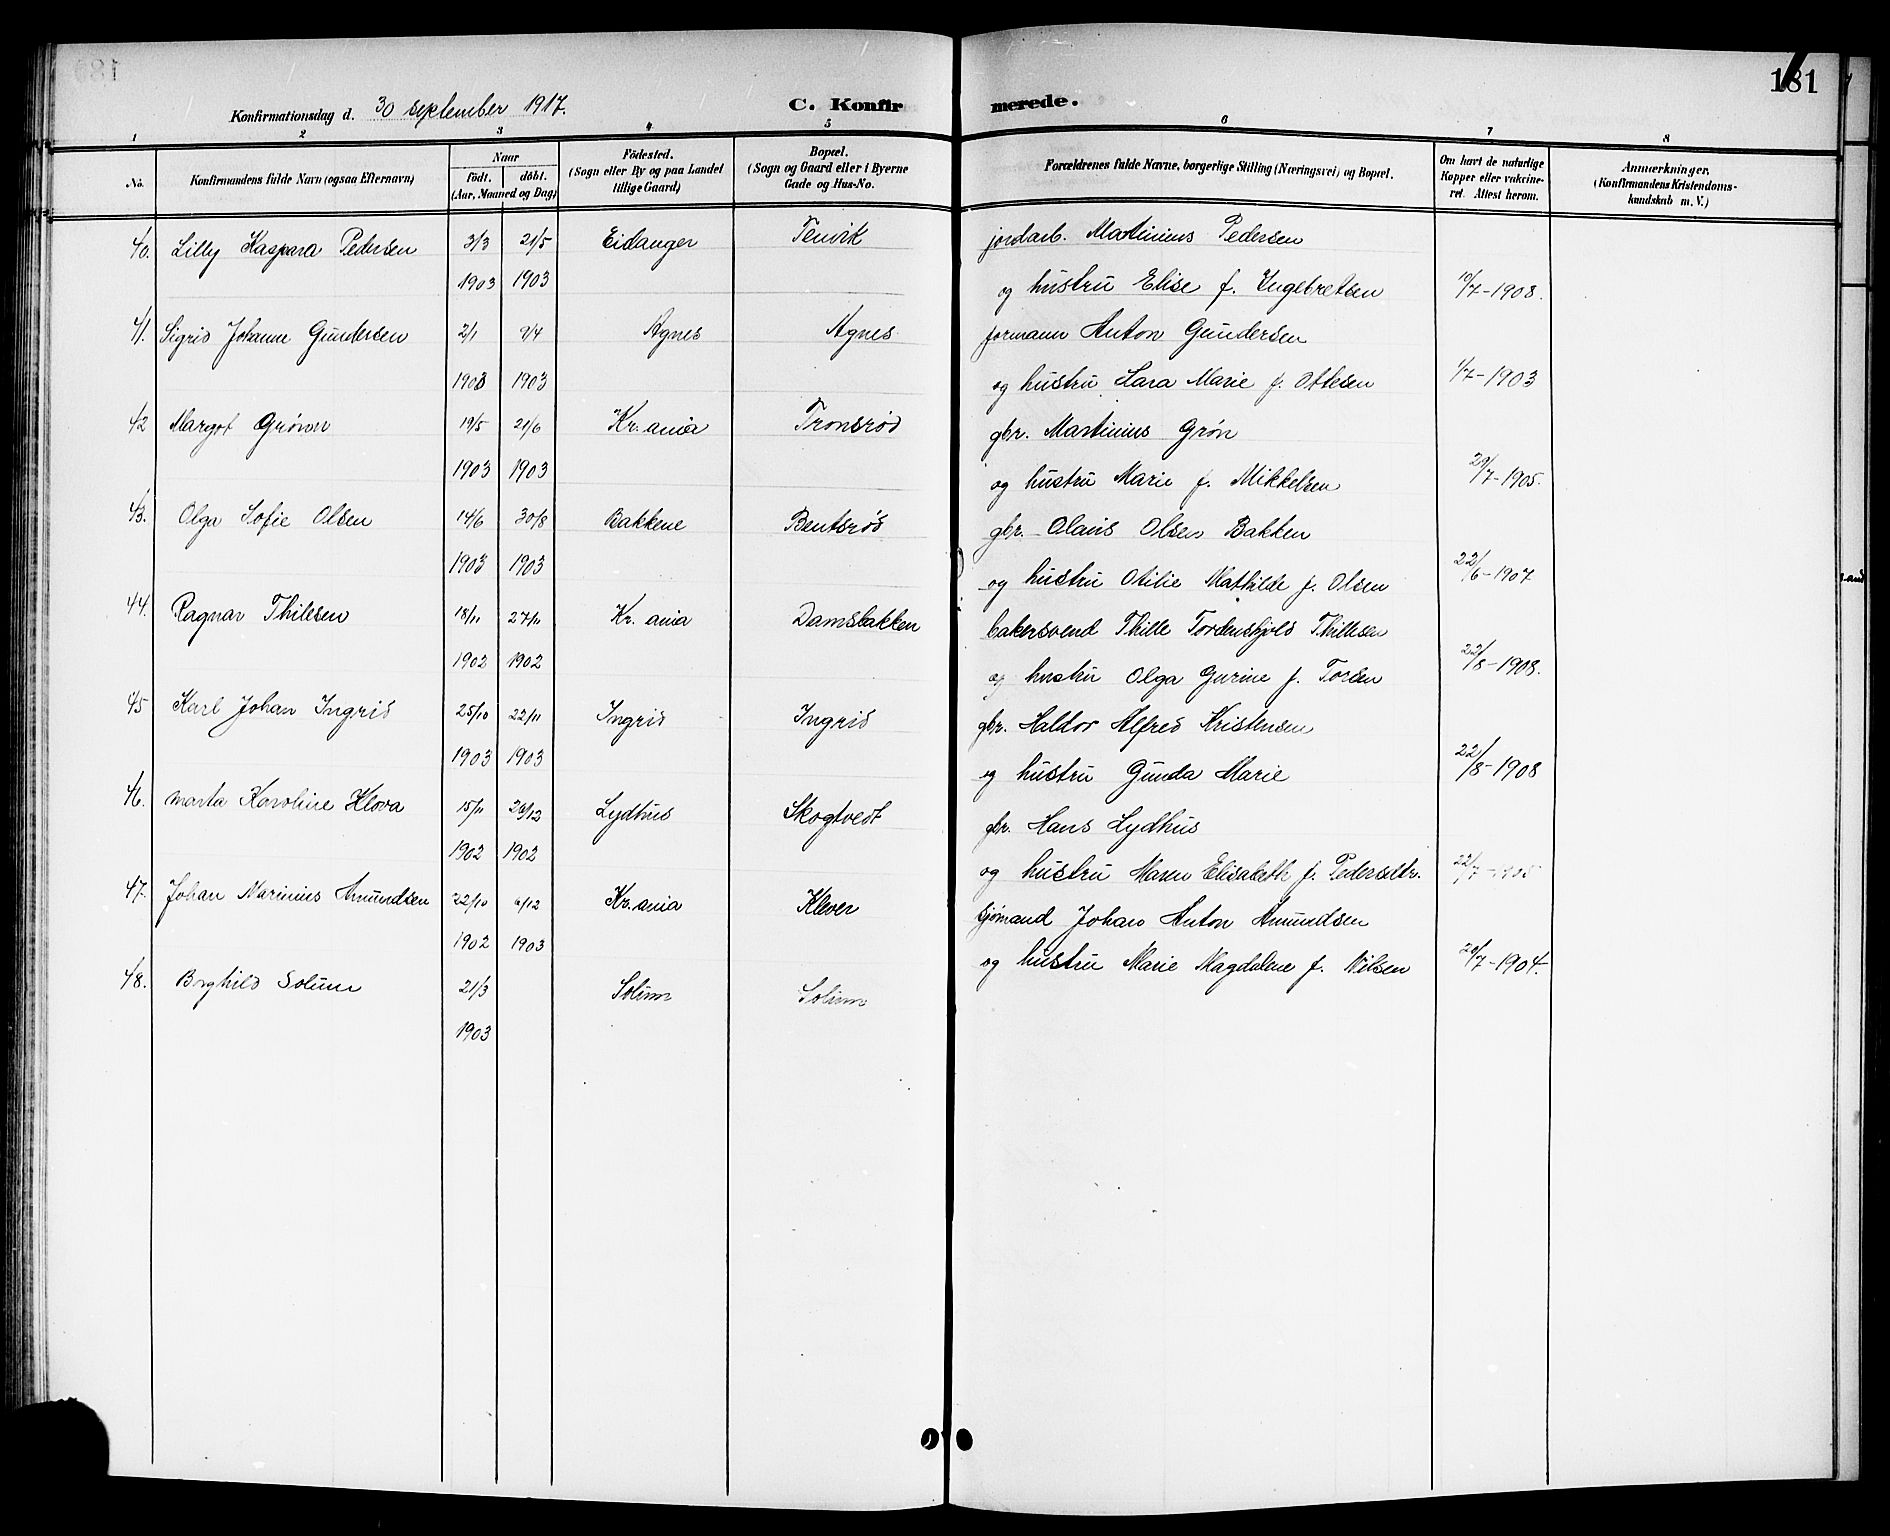 181
Konfirmationsdag d. 30 september 1917. C. Konfirmerede.
1 2 3 4 5 6 7 8
No. Konfirmandens fulde Navn (ogsaa Efternavn) Naar födt. döbt. (Aar, Maaned og Dag) Födested. (Sogn eller By og paa Landet tillige Gaard) Bopæl. (Sogn og Gaard eller i Byerne Gade og Hus-No. Forældrenes fulde Navne, borgerlige Stilling (Næringsvei) og Bopæl. Om havt de naturlige Kopper eller vakcineret. Attest herom. Anmærkninger. (Konfirmandens Kristendomskundskab m. V.)
40. Lilly Kaspara Pedersen 3/3 21/5 Eidanger Tenvik jordarb. Martinius Pedersen
1903 1903 og hustru Elise f. Ingebretsen 10/7-1908.
41. Sigrid Johanne Gundersen 2/1 9/4 Agnes Agnes formann Anton Gundersen
1903 1903 og hustru Lara Marie f. Ottesen 1/7-1903
42 Margot Grønn 19/5 21/6 Kr.ania Tronsrød gbr. Martinius Grøn
1903 1903 og hustru Marie f. Mikkelsen 29/7-1905.
43. Olga Sofie Olsen 14/6 30/8 Bakkene Bentsrød gbr. Olaus Olsen Bakken
1903 1903 og hustru Otilie Mathilde f. Olsen 22/6-1907
44. Ragnar Thillesen 18/11 27/11 Kr.ania Damsbakken bakersvend Thille Tordenskjold Thillesen
1902 1902 og hustru Olga Gurine f. Torsen 22/8-1908.
45 Karl Johan Ingrid 25/10 22/11 Ingrid Ingrid gbr. Haldor Alfred Kristensen
1903 1903 og hustru Gunda Marie 22/8-1908
46. Marta Karoline Klova 15/11 26/12 Lydhus Skogtvedt gbr. Hans Lydhus
1902 1902 og hustru Maren Elisabeth f. Pedersdtr. 22/7-1905
47. Johan Marinius Amundsen 22/10 6/12 Kr.ania Klever sjømand Johan Anton Amundsen
1902 1903 og hustru Marie Magdalene f. Nilsen 20/7-1904.
48. Borghild Solum 21/3 Solum Solum
1903